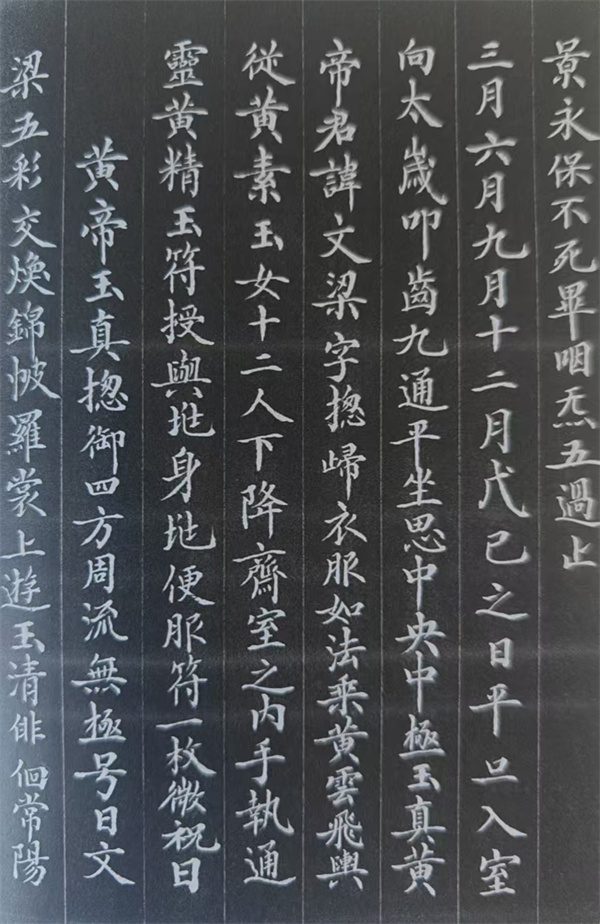 景永保不死畢咽炁五過止
三月六月九月十二月戊己之日平旦入室
向太歲叩齒九通平坐思中央中極玉真黃
帝君諱文梁字揔歸衣服如法乘黃雲飛輿
從黃素玉女十二人下降齋室之内手執通
靈黃精玉符授與兆身兆便服符一枚微祝曰
黃帝玉真揔御四方周流無極号曰文
梁五彩交煥錦帔羅裳上遊玉清俳佪常陽